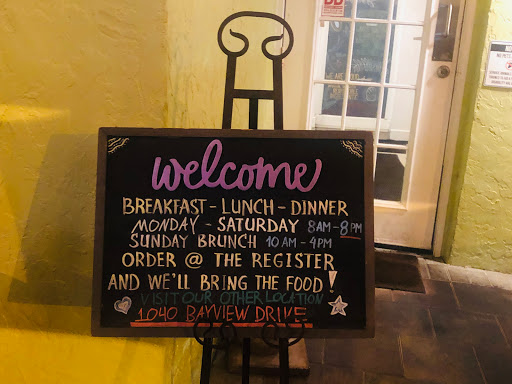 welcome
BREAKFAST - LUNCH - DINNER
MONDAY - SATURDAY 8AM - 8PM
SUNDAY BRUNCH 10 AM - 4PM
ORDER @ THE REGISTER
AND WE'LL BRING THE FOOD!
VISIT OUR OTHER LOCATION
1040 BAYVIEW DRIVE